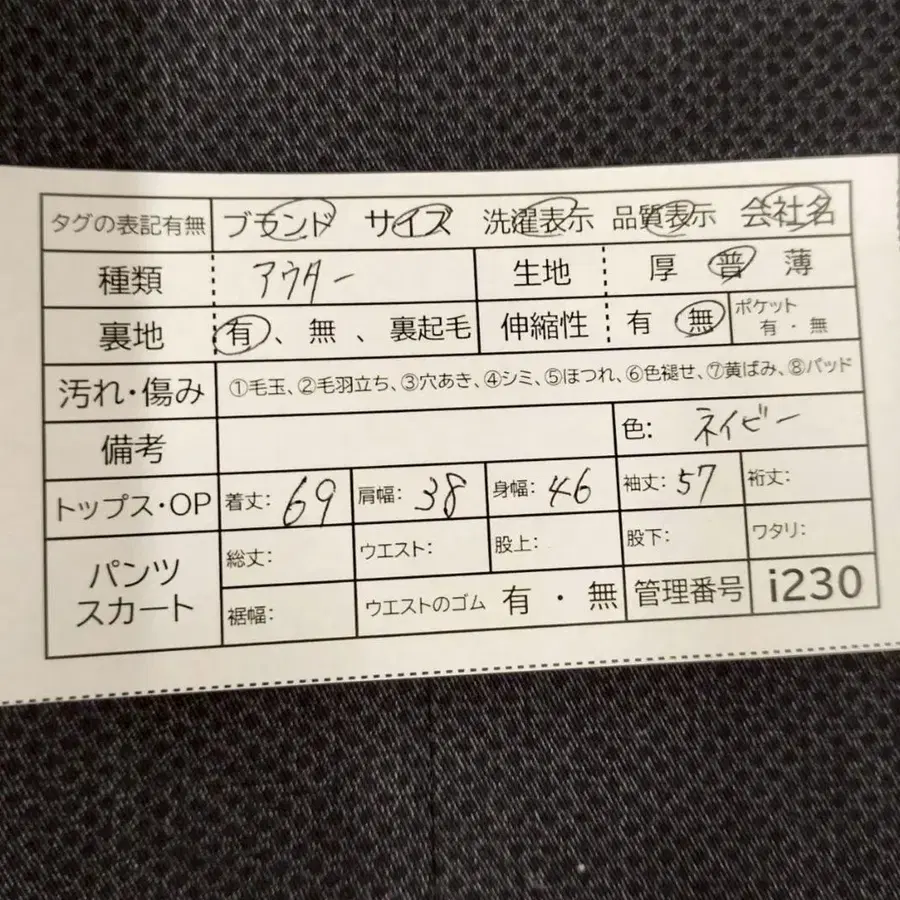 タグの表記有無 ブランド サイズ 洗濯表示 品質表示 会社名
種類 アウター 生地 厚 普 薄
裏地 有、無、裏起毛 伸縮性 有 無 ポケット 有・無
汚れ・傷み ①毛玉、②毛羽立ち、③穴あき、④シミ、⑤ほつれ、⑥色褪せ、⑦黄ばみ、⑧パッド
備考 色: ネイビー
トップス・OP 着丈: 69 肩幅: 38 身幅: 46 袖丈: 57 裄丈:
パンツ スカート 総丈: ウエスト: 股上: 股下: ワタリ:
裾幅: ウエストのゴム 有・無 管理番号 i230